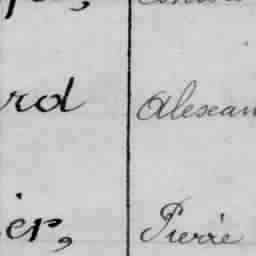 rd Alexan
ier, Pierre